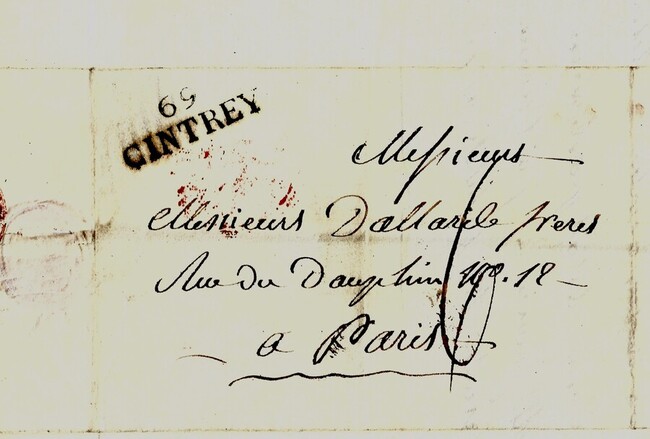 69
CINTREY
Messieurs
Messieurs Dallarde freres
Rue du Dauphin N.º 18
a Paris
6